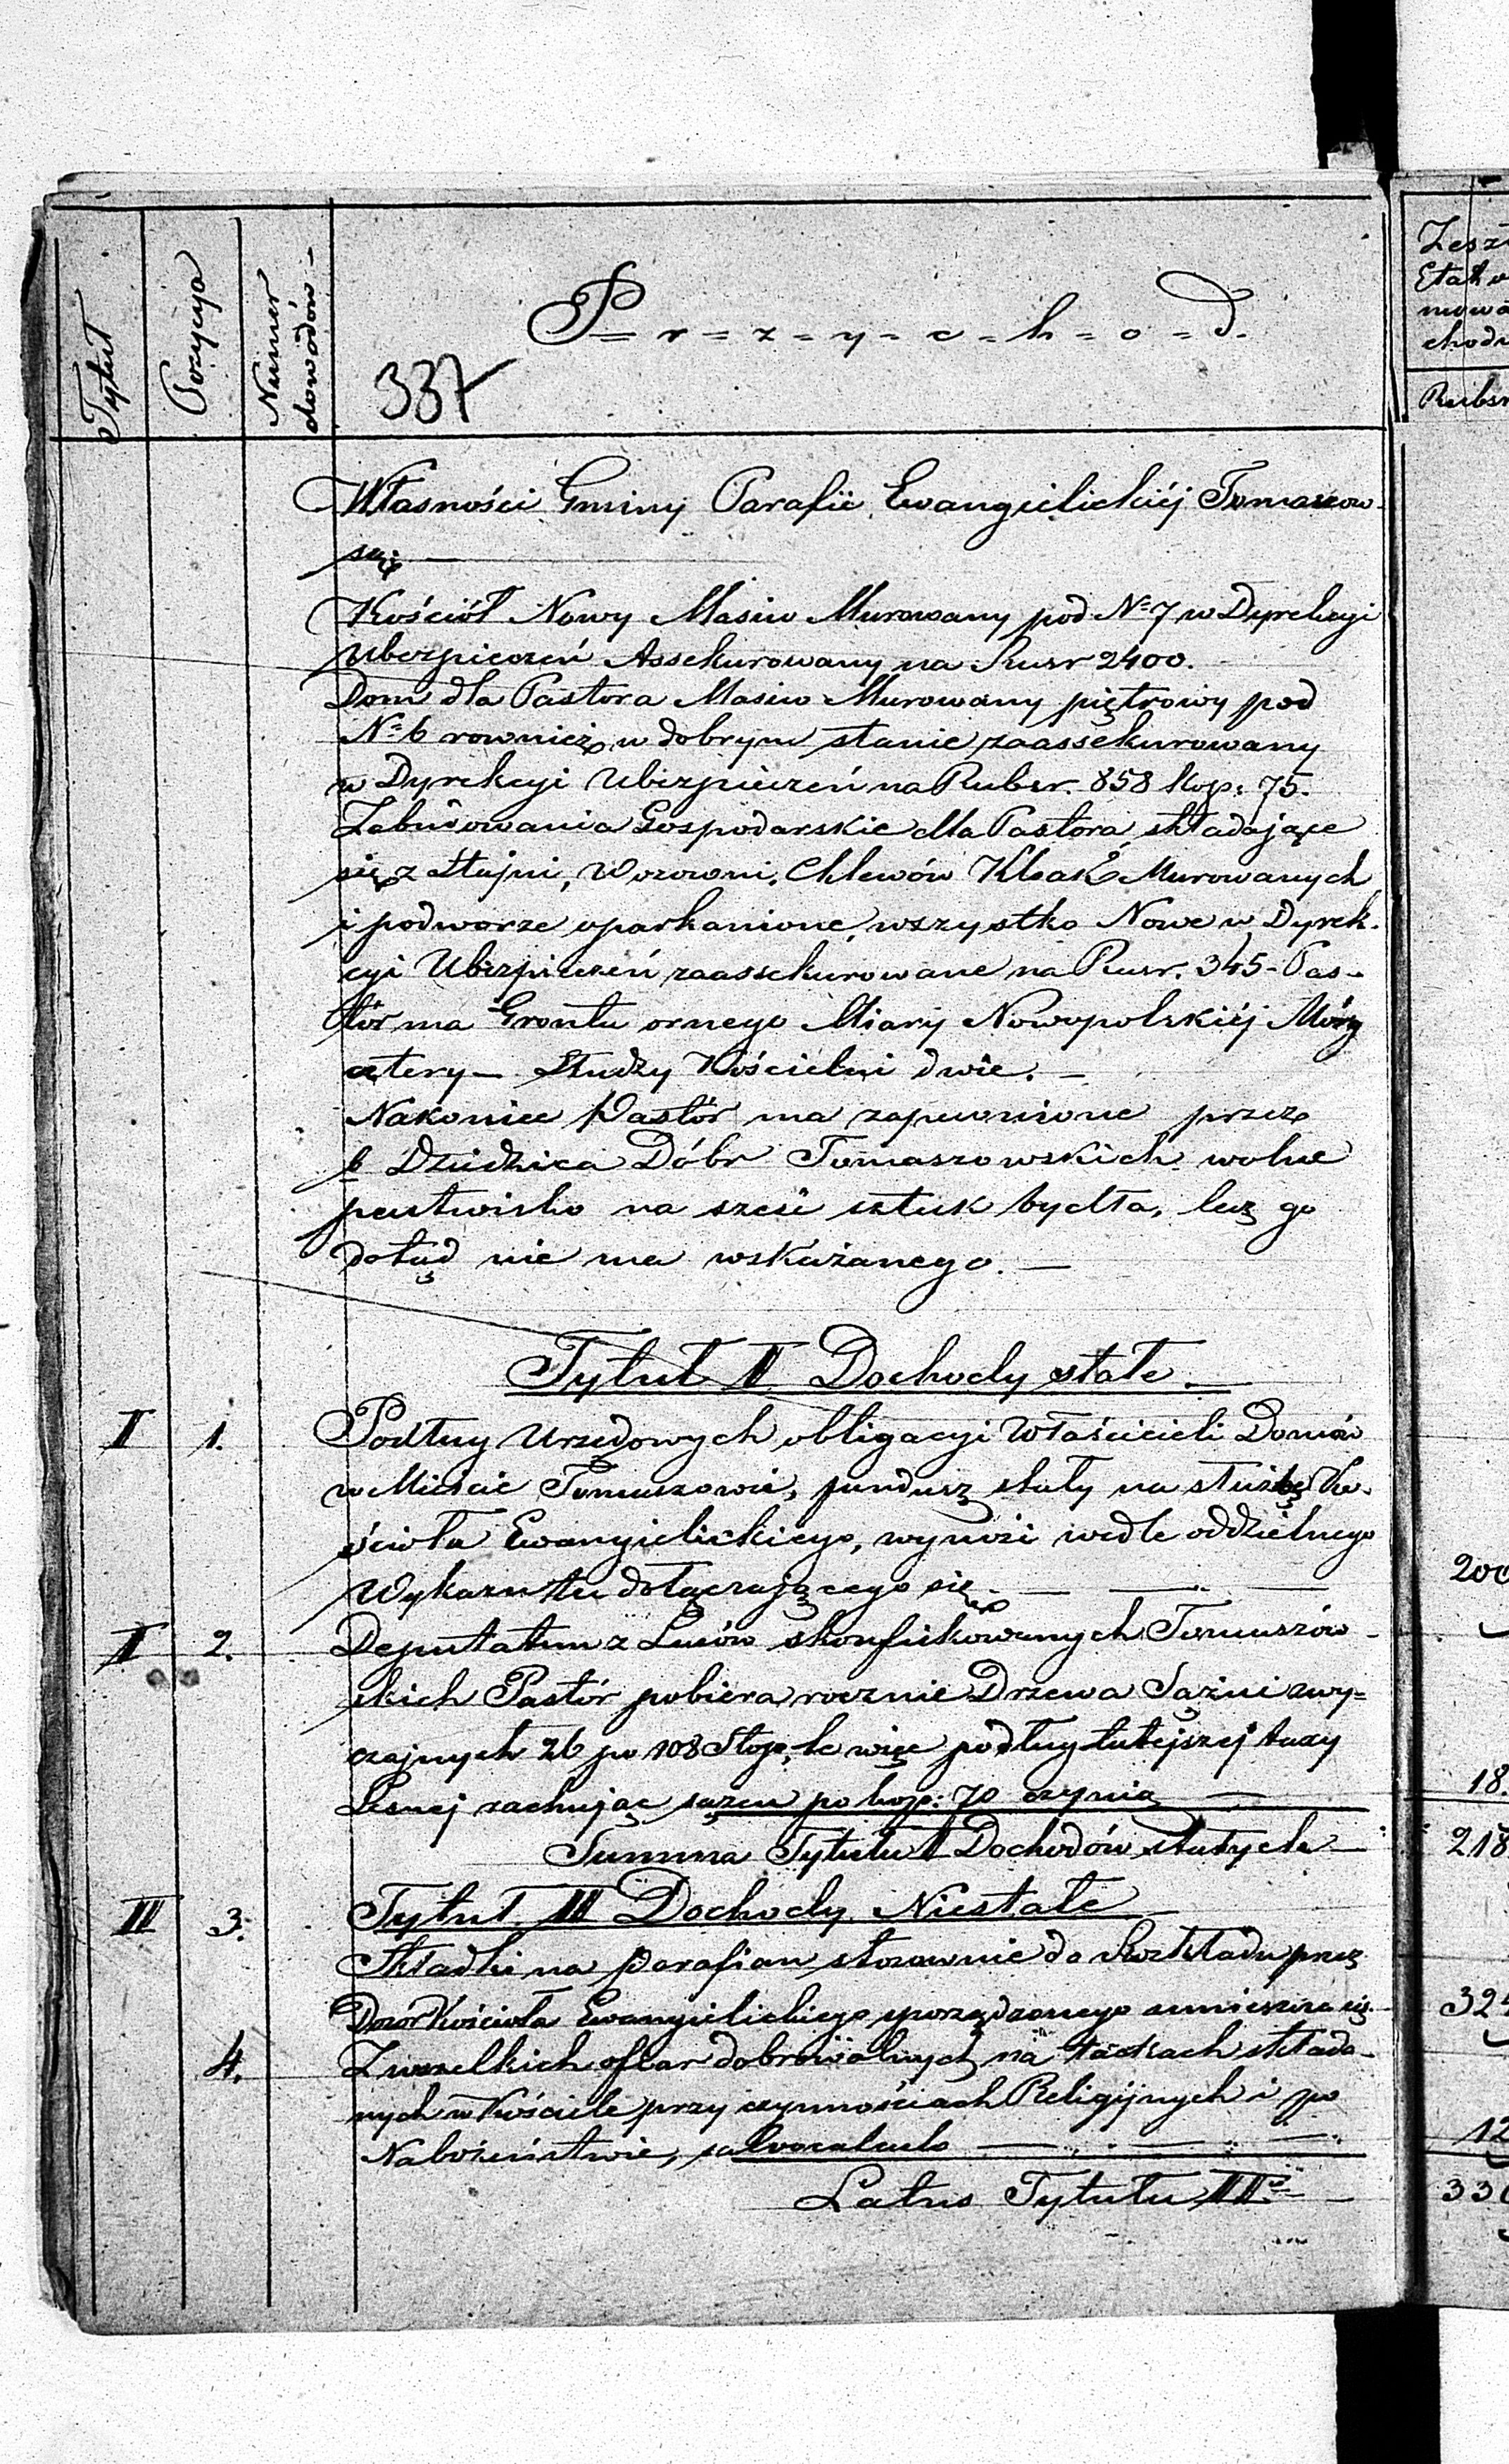 Tytuł
Pozycya
Numer dowodów
P=r=z=y=c=h=o=d.
337
Własności Gminy Parafii Ewangielickiéj Tomaszow-
są:
Kościół Nowy Masiw Murowany pod No 7 w Dyrekcyi
Ubezpieczeń Assekurowany na Rusr 2400.
Dom dla Pastora Masiw Murowany piętrowy pod
No 6 rownież w dobrym stanie zaassekurowany
w Dyrekcyi Ubezpieczeń na Rubsr. 858 kop: 75.
Zabudowania Gospodarskie dla Pastora składające
się z Stajni, Wozowni, Chlewów Murowanych
i podworze oparkanione, wszystko Nowe w Dyrek-
cyi Ubezpieczeń zaassekurowane na Rusr. 345 - Pas-
tór ma Gruntu ornego Miary Nowopolskiéj Mórg
cztery - Studzy Kościelni dwie. -
Nakoniec Pastór ma zapewnione przez
b Dziedzica Dóbr Tomaszowskich wolne
pastwisko na sześć sztuk bydła, lecz go
dotąd nie ma wskazanego. -
Tytuł II Dochody stałe.
II 1. Podług Urzędowych obligacyi Właścicieli Domów
w Mieście Tomaszowie, fundusz stały na służbę Ko-
ścioła Ewangielickiego, wynosi wedle oddzielnego
Wykazu tu dołączającego się -
II 2. Deputatum z Lasów skonfiskowanych Tomaszów-
skich Pastór pobiera rocznie Drzewa Sążni zwy=
czajnych 26 po 108 Stop, te więc podług tutejszej taxy
Lesnej rachując sążeń po kop: 70 czynią -
Summa Tytułu II Dochodów stałych -
III 3. Tytuł III Dochody Niestałe
Składki na parafian stosownie do Rozkładu przez
Dozór Kościoła Ewangielickiego sporządzonego umieszcza się
4. Z wszelkich ofiar dobrowolnych na tackach składa-
nych w Kościele przy czynnościach Religijnych i po
Nabożeństwie, salvo calculo
Latus Tytułu III
Etat
chodu
Rubsr
200
18.
218
32
12
33